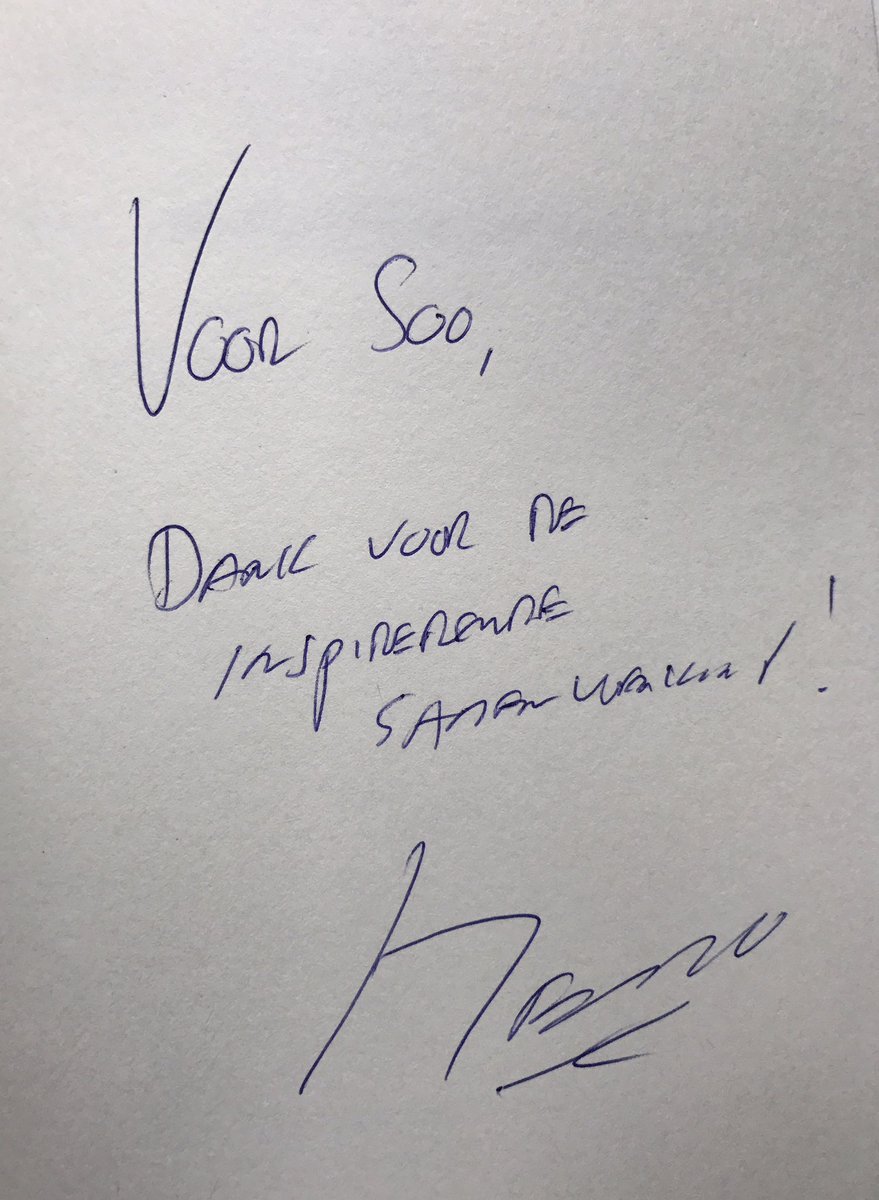 Voor Soo,
Dank voor de
inspirerende
samenwerking!